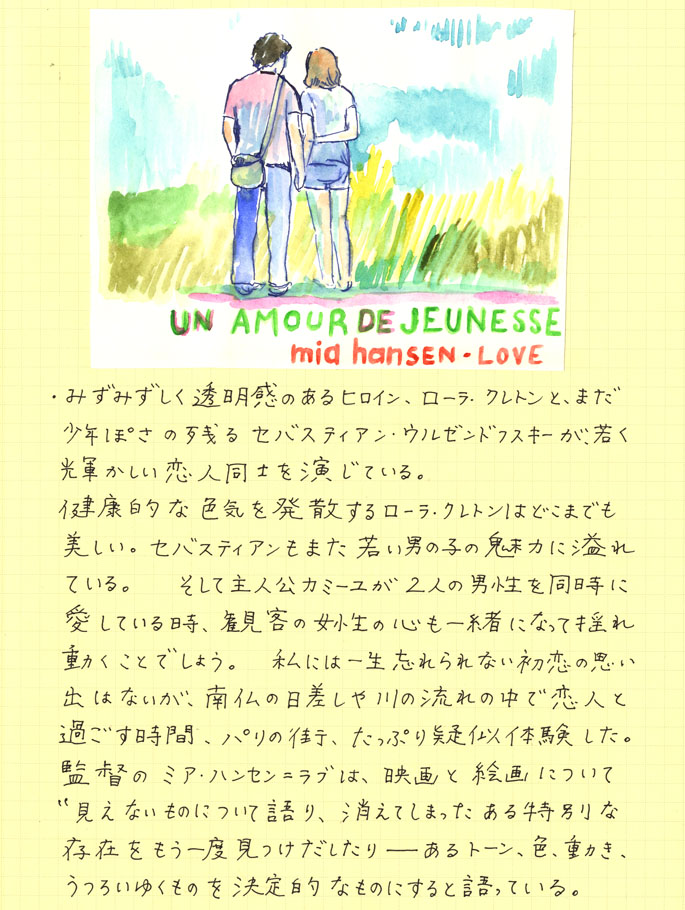 UN AMOUR DE JEUNESSE
mia hansEN・LOVE
・みずみずしく透明感のあるヒロイン、ローラ・クレトンと、まだ
少年ぽさの残るセバスティアン・ウルゼンドフスキーが、若く
光輝かしい恋人同士を演じている。
健康的な色気を発散するローラ・クレトンはどこまでも
美しい。セバスティアンもまた若い男の子の魅力に溢れ
ている。 そして主人公カミーユが2人の男性を同時に
愛している時、観客の女性の心も一緒になって揺れ
動くことでしょう。 私には一生忘れられない初恋の思い
出はないが、南仏の日差しや川の流れの中で恋人と
過ごす時間、パリの街、たっぷり疑似体験した。
監督のミア・ハンセン=ラブは、映画と絵画について
〝見えないものについて語り、消えてしまったある特別な
存在をもう一度見つけだしたり――あるトーン、色、動き、
うつろいゆくものを決定的なものにすると語っている。